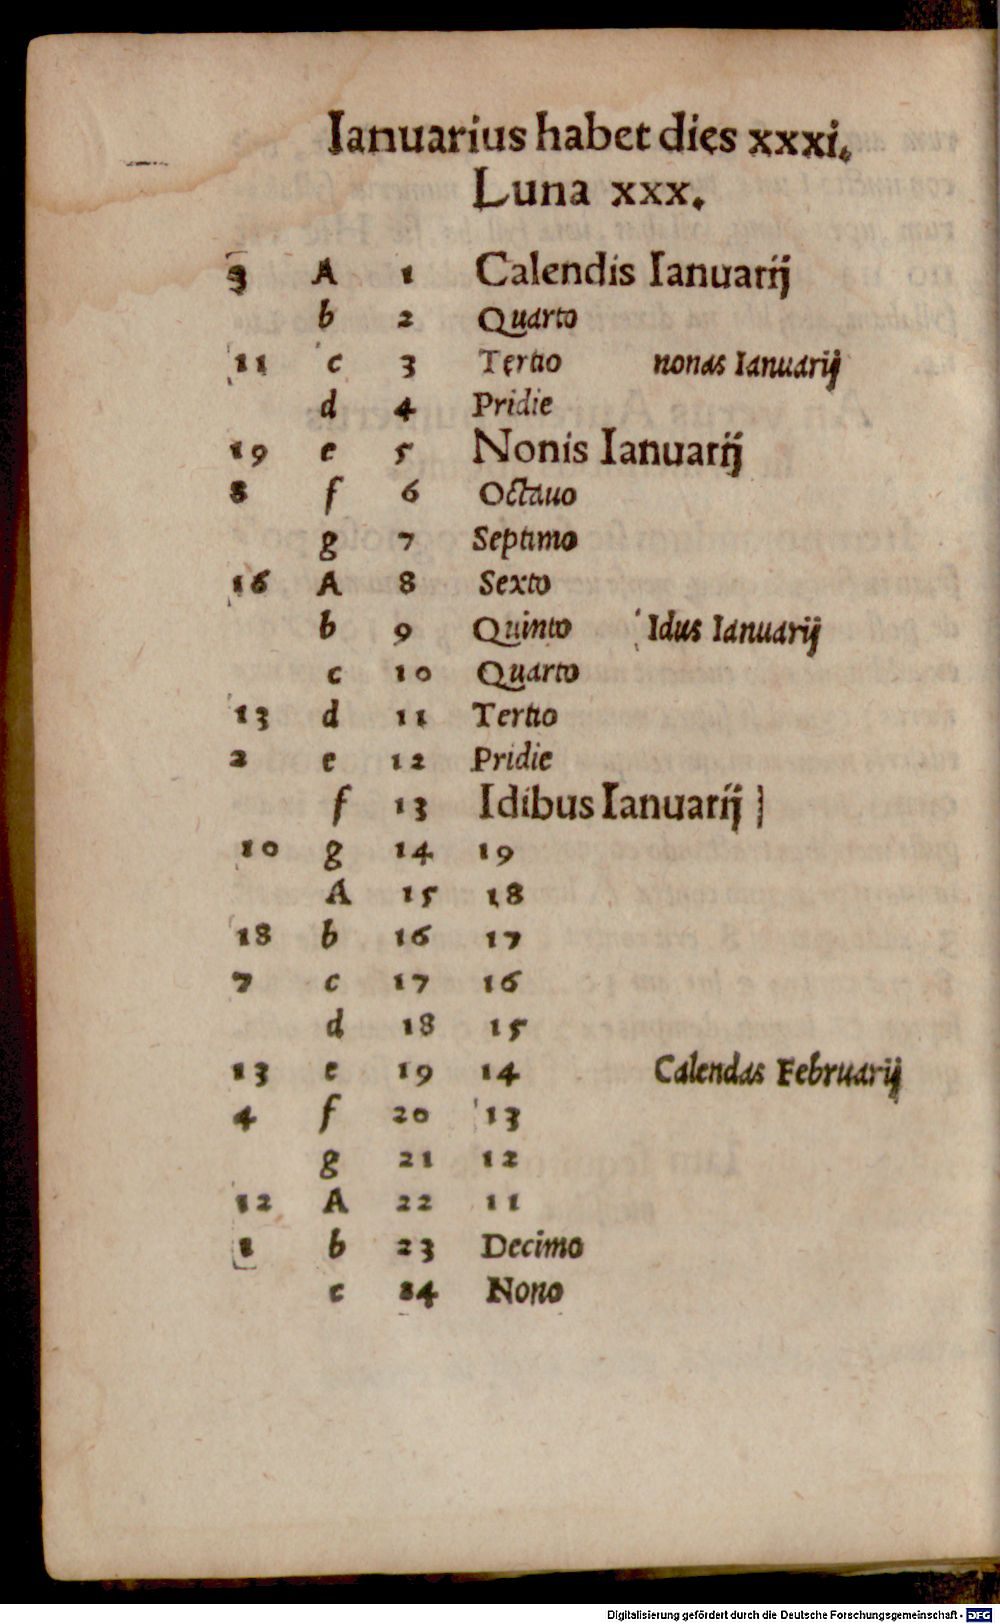 Ianuarius habet dies xxxi.
Luna xxx.
3 A 1 Calendis Ianuarij
b 2 Quarto
11 c 3 Tertio nonas Ianuarij
d 4 Pridie
19 e 5 Nonis Ianuarij
8 f 6 Octauo
g 7 Septimo
16 A 8 Sexto
b 9 Quinto Idus Ianuarij
c 10 Quarto
13 d 11 Tertio
2 e 12 Pridie
f 13 Idibus Ianuarij
10 g 14 19
A 15 18
18 b 16 17
7 c 17 16
d 18 15
13 e 19 14 Calendas Februarij
4 f 20 13
g 21 12
12 A 22 11
1 b 23 Decimo
c 24 Nono
Digitalisierung gefördert durch die Deutsche Forschungsgemeinschaft - DFG